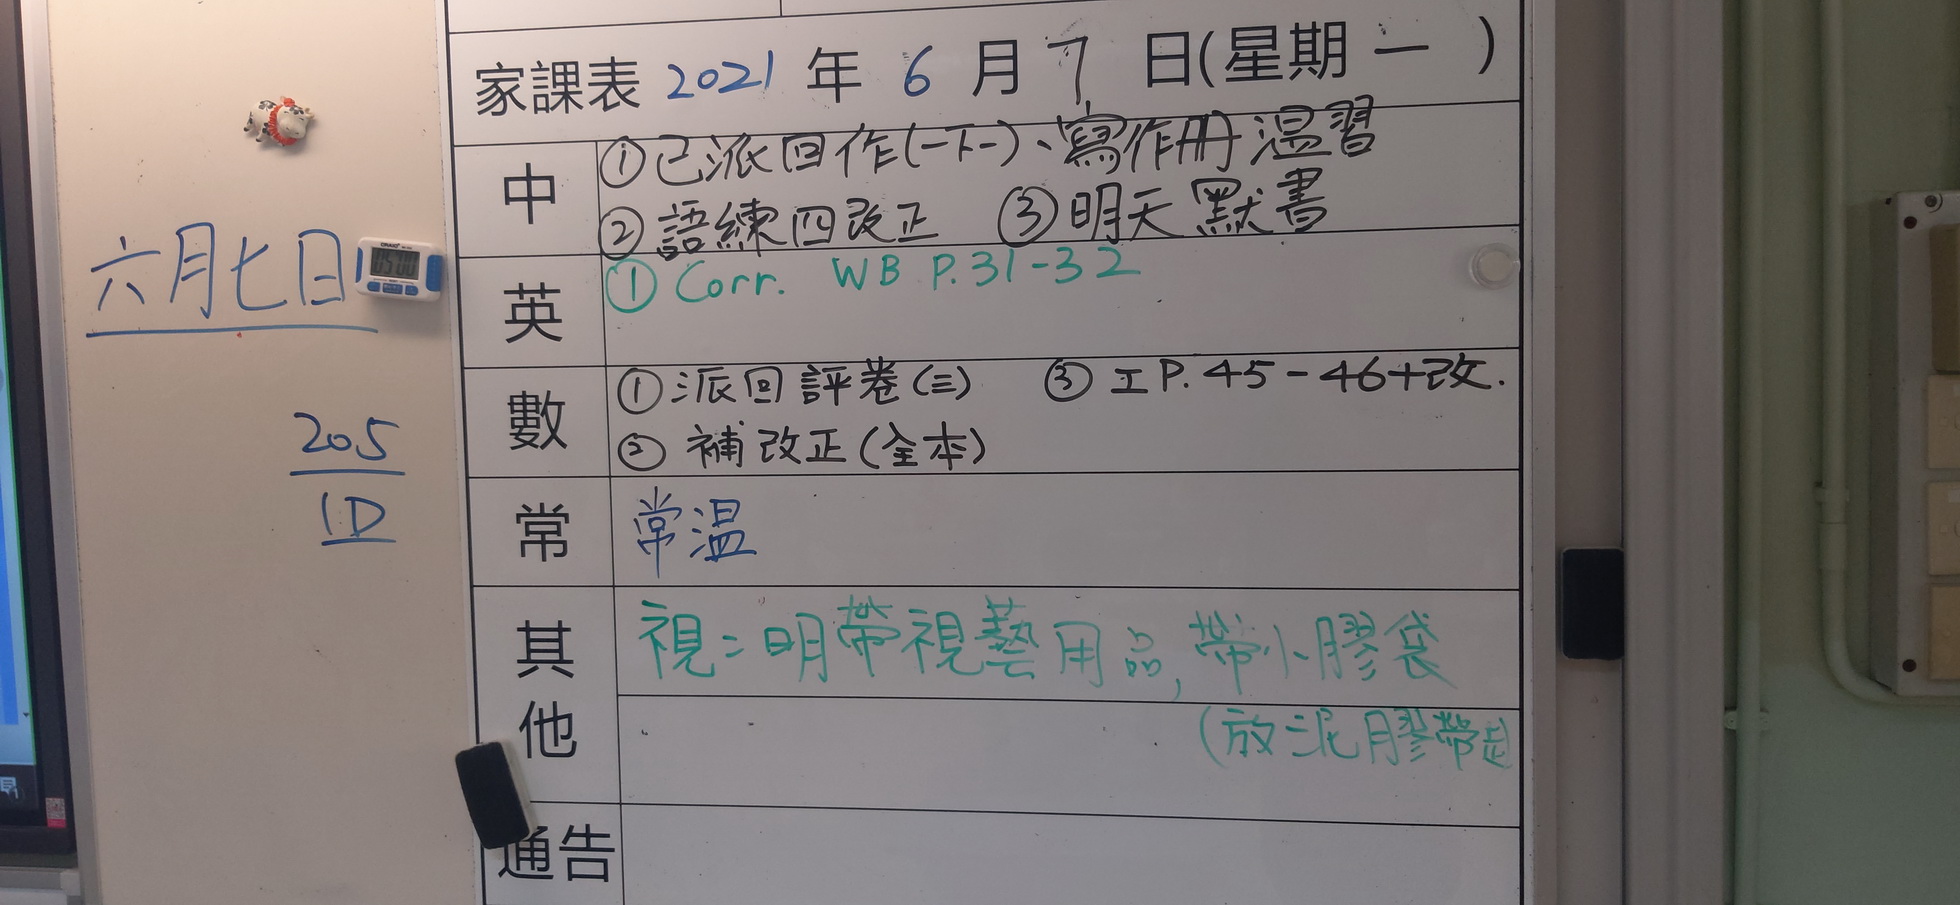 家課表 2021 年 6 月 7 日(星期 一 )
中
①已派回作(一下一)、寫作冊溫習
②語練四改正 ③明天默書
英
① Corr. WB P.31-32
數
①派回評卷(三) ③工P.45-46+改.
② 補改正(全本)
常
常溫
其他
視:明帶視藝用品,帶小膠袋
(放泥膠帶走
通告
六月七日
205
1D